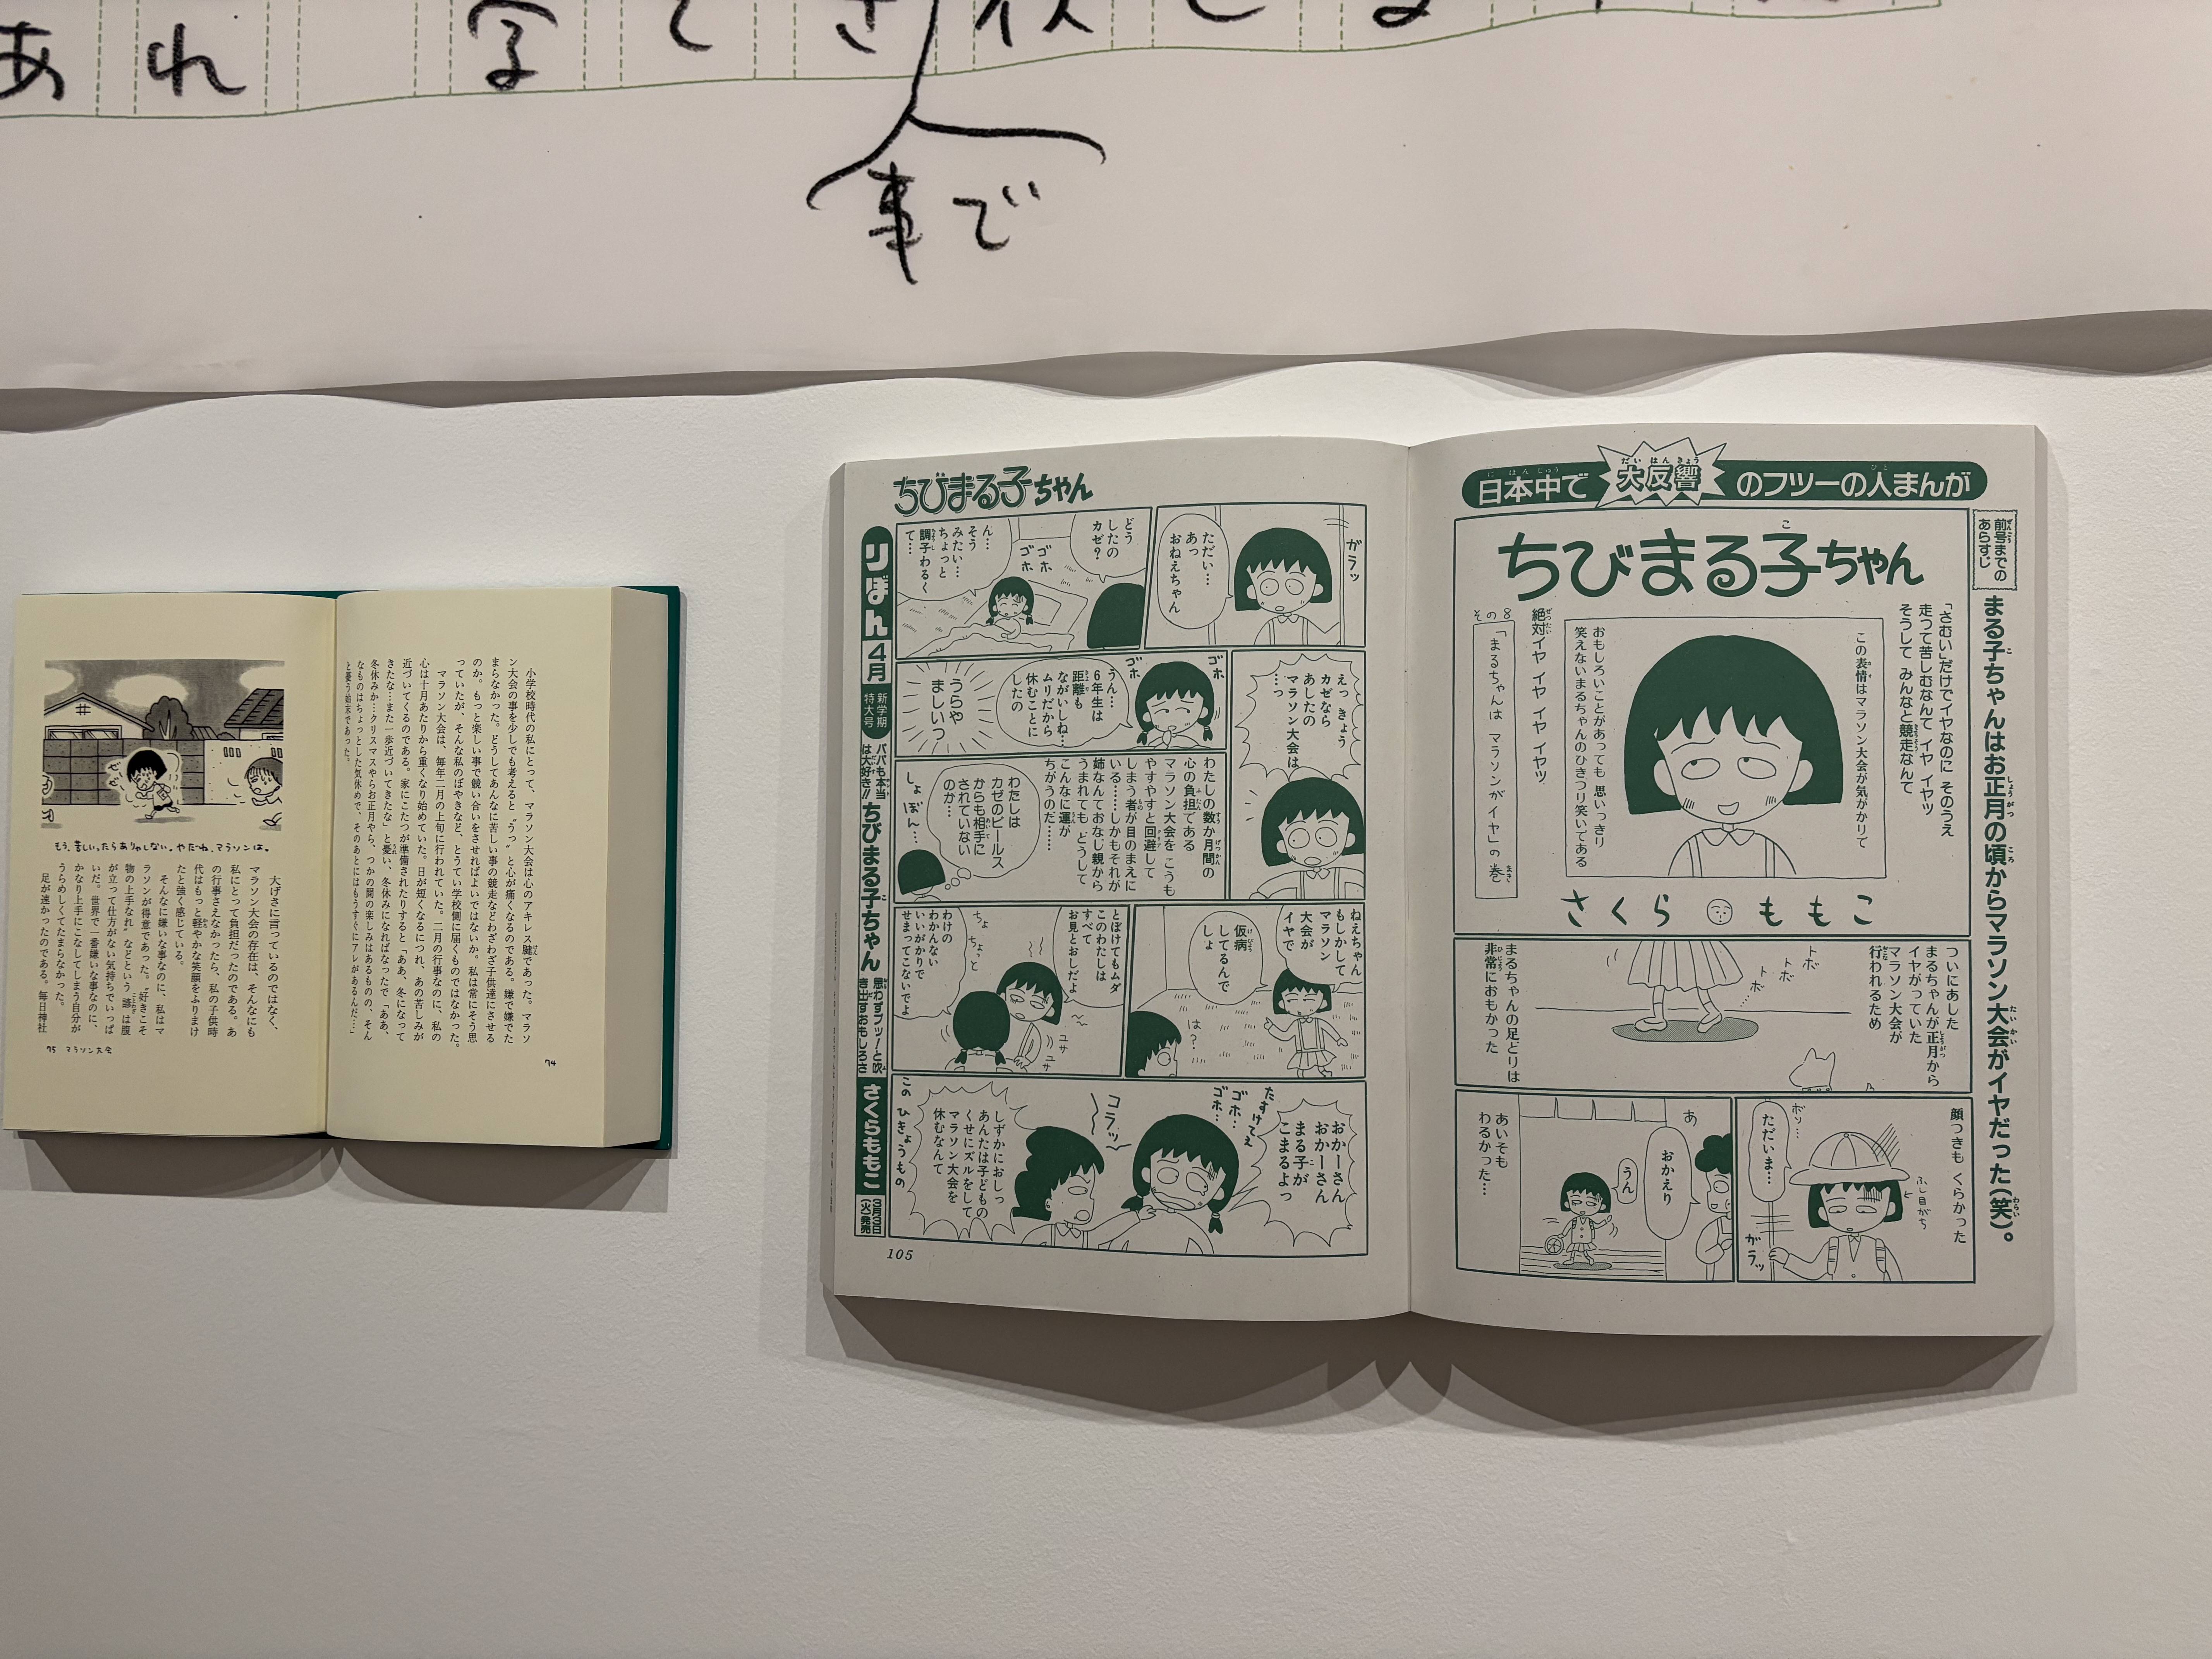 あ
れ
字
て
事で
日本中で大反響のフツーの人まんが
前号までの
あらすじ
まる子ちゃんはお正月の頃からマラソン大会がイヤだった(笑)。
ちびまる子ちゃん
「さむい」だけでイヤなのに そのうえ
走って苦しむなんて イヤ イヤッ
そうして みんなと競走なんて
この表情はマラソン大会が気がかりで
おもしろいことがあっても 思いっきり
笑えないまるちゃんのひきつり笑いである
絶対イヤ イヤ イヤ イヤッ
その8
「まるちゃんは マラソンがイヤ」の巻
さくらももこ
ついにあした
まるちゃんが正月から
イヤがっていた
マラソン大会が
行われるため
トボ
トボ
トボ
まるちゃんの足どりは
非常におもかった
顔つきも くらかった
ふし目がち
ボソ…
ただいま…
ガラッ
あ
おかえり
うん
あいそも
わるかった…
ちびまる子ちゃん
りぼん4月
新学期
特大号
パパも本当
は大好き!!
ちびまる子ちゃん
思わずプッ!と吹
き出すおもしろさ
さくらももこ
3月3日
(火)発売
ガラッ
ただい…
あっ
おねえちゃん
どう
したの
カゼ?
ゴホ
ゴホ
ん…
そう
みたい…
ちょっと
調子わるく
て…
えっ きょう
カゼなら
あしたの
マラソン大会は
…っ
ゴホ
ゴホ
うん…
6年生は
距離も
ながいしね…
ムリだから
休むことに
したの
うらや
ましいっ
わたしの数か月間の
心の負担である
マラソン大会を こうも
やすやすと回避して
しまう者が目のまえに
いる……しかもそれが
姉なんておなじ親から
うまれても どうして
こんなに運が
ちがうのだ……
わたしは
カゼのビールス
からも相手に
されていない
のか…
しょぼん…
ねえちゃん
もしかして
マラソン
大会が
イヤで
仮病
してるんで
しょ
は?
とぼけてもムダ
このわたしは
すべて
お見とおしだよ
ユサ
ユサ
ちょ
ちょっと
わけの
わかんない
いいがかりで
せまってこないでよ
おかーさん
おかーさん
まる子が
こまるよっ
たすけてぇ
ゴホ…
ゴホ…
コラッ
しずかにおしっ
あんたは子どもの
くせにズルをして
マラソン大会を
休むなんて
このひきょうもの
105
小学校時代の私にとって、マラソン大会は心のアキレス腱であった。マラソ
ン大会の事を少しでも考えると〝うっ〟と心が痛くなるのである。嫌で嫌でた
まらなかった。どうしてあんなに苦しい事の競走などわざわざ子供達にさせる
のか。もっと楽しい事で競い合いをさせればよいではないか。私は常にそう思
っていたが、そんな私のぼやきなど、とうてい学校側に届くものではなかった。
マラソン大会は、毎年二月の上旬に行われていた。二月の行事なのに、私の
心は十月あたりから重くなり始めていた。日が短くなるにつれ、あの苦しみが
近づいてくるのである。家にこたつが準備されたりすると「ああ、冬になって
きたな…また一歩近づいてきたな」と憂い、冬休みになればなったで「ああ、
冬休みか…クリスマスやらお正月やら、つかの間の楽しみはあるものの、そん
なものはちょっとした気休めで、そのあとにはもうすぐにアレがあるんだ…」
と憂う始末であった。
74
もう、苦しいったらありゃしない。やだね、マラソンは。
大げさに言っているのではなく、
マラソン大会の存在は、そんなにも
私にとって負担だったのである。あ
の行事さえなかったら、私の子供時
代はもっと軽やかな笑顔をふりまけ
たと強く感じている。
そんなに嫌いな事なのに、私はマ
ラソンが得意であった。〝好きこそ
物の上手なれ〟などという諺は腹
が立って仕方がない気持ちでいっぱ
いだ。世界で一番嫌いな事なのに、
かなり上手にこなしてしまう自分が
うらめしくてたまらなかった。
足が速かったのである。毎日神社
75 マラソン大会